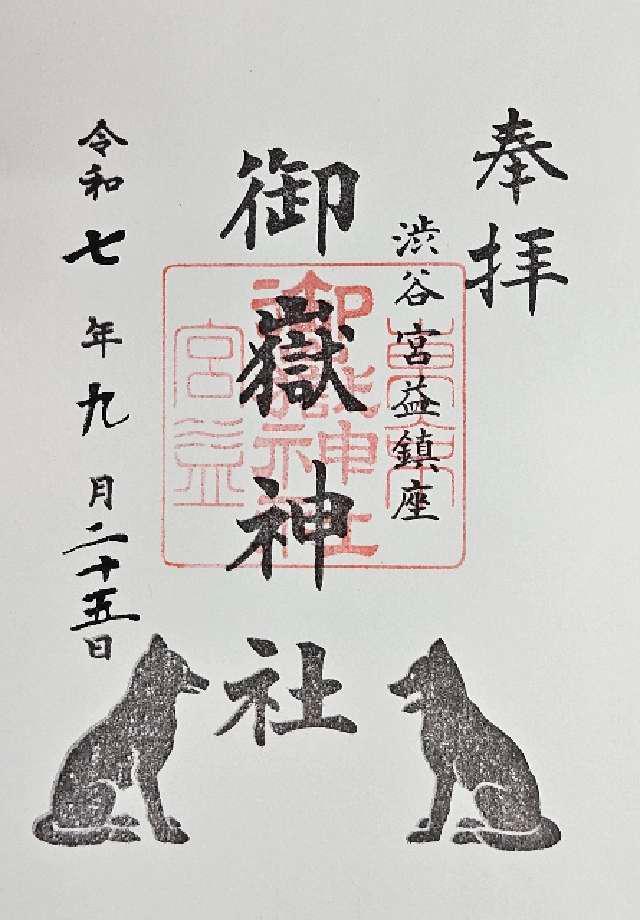 奉拝
渋谷宮益鎮座
御嶽神社
令和七年九月二十五日
東京
御嶽神社
宮益